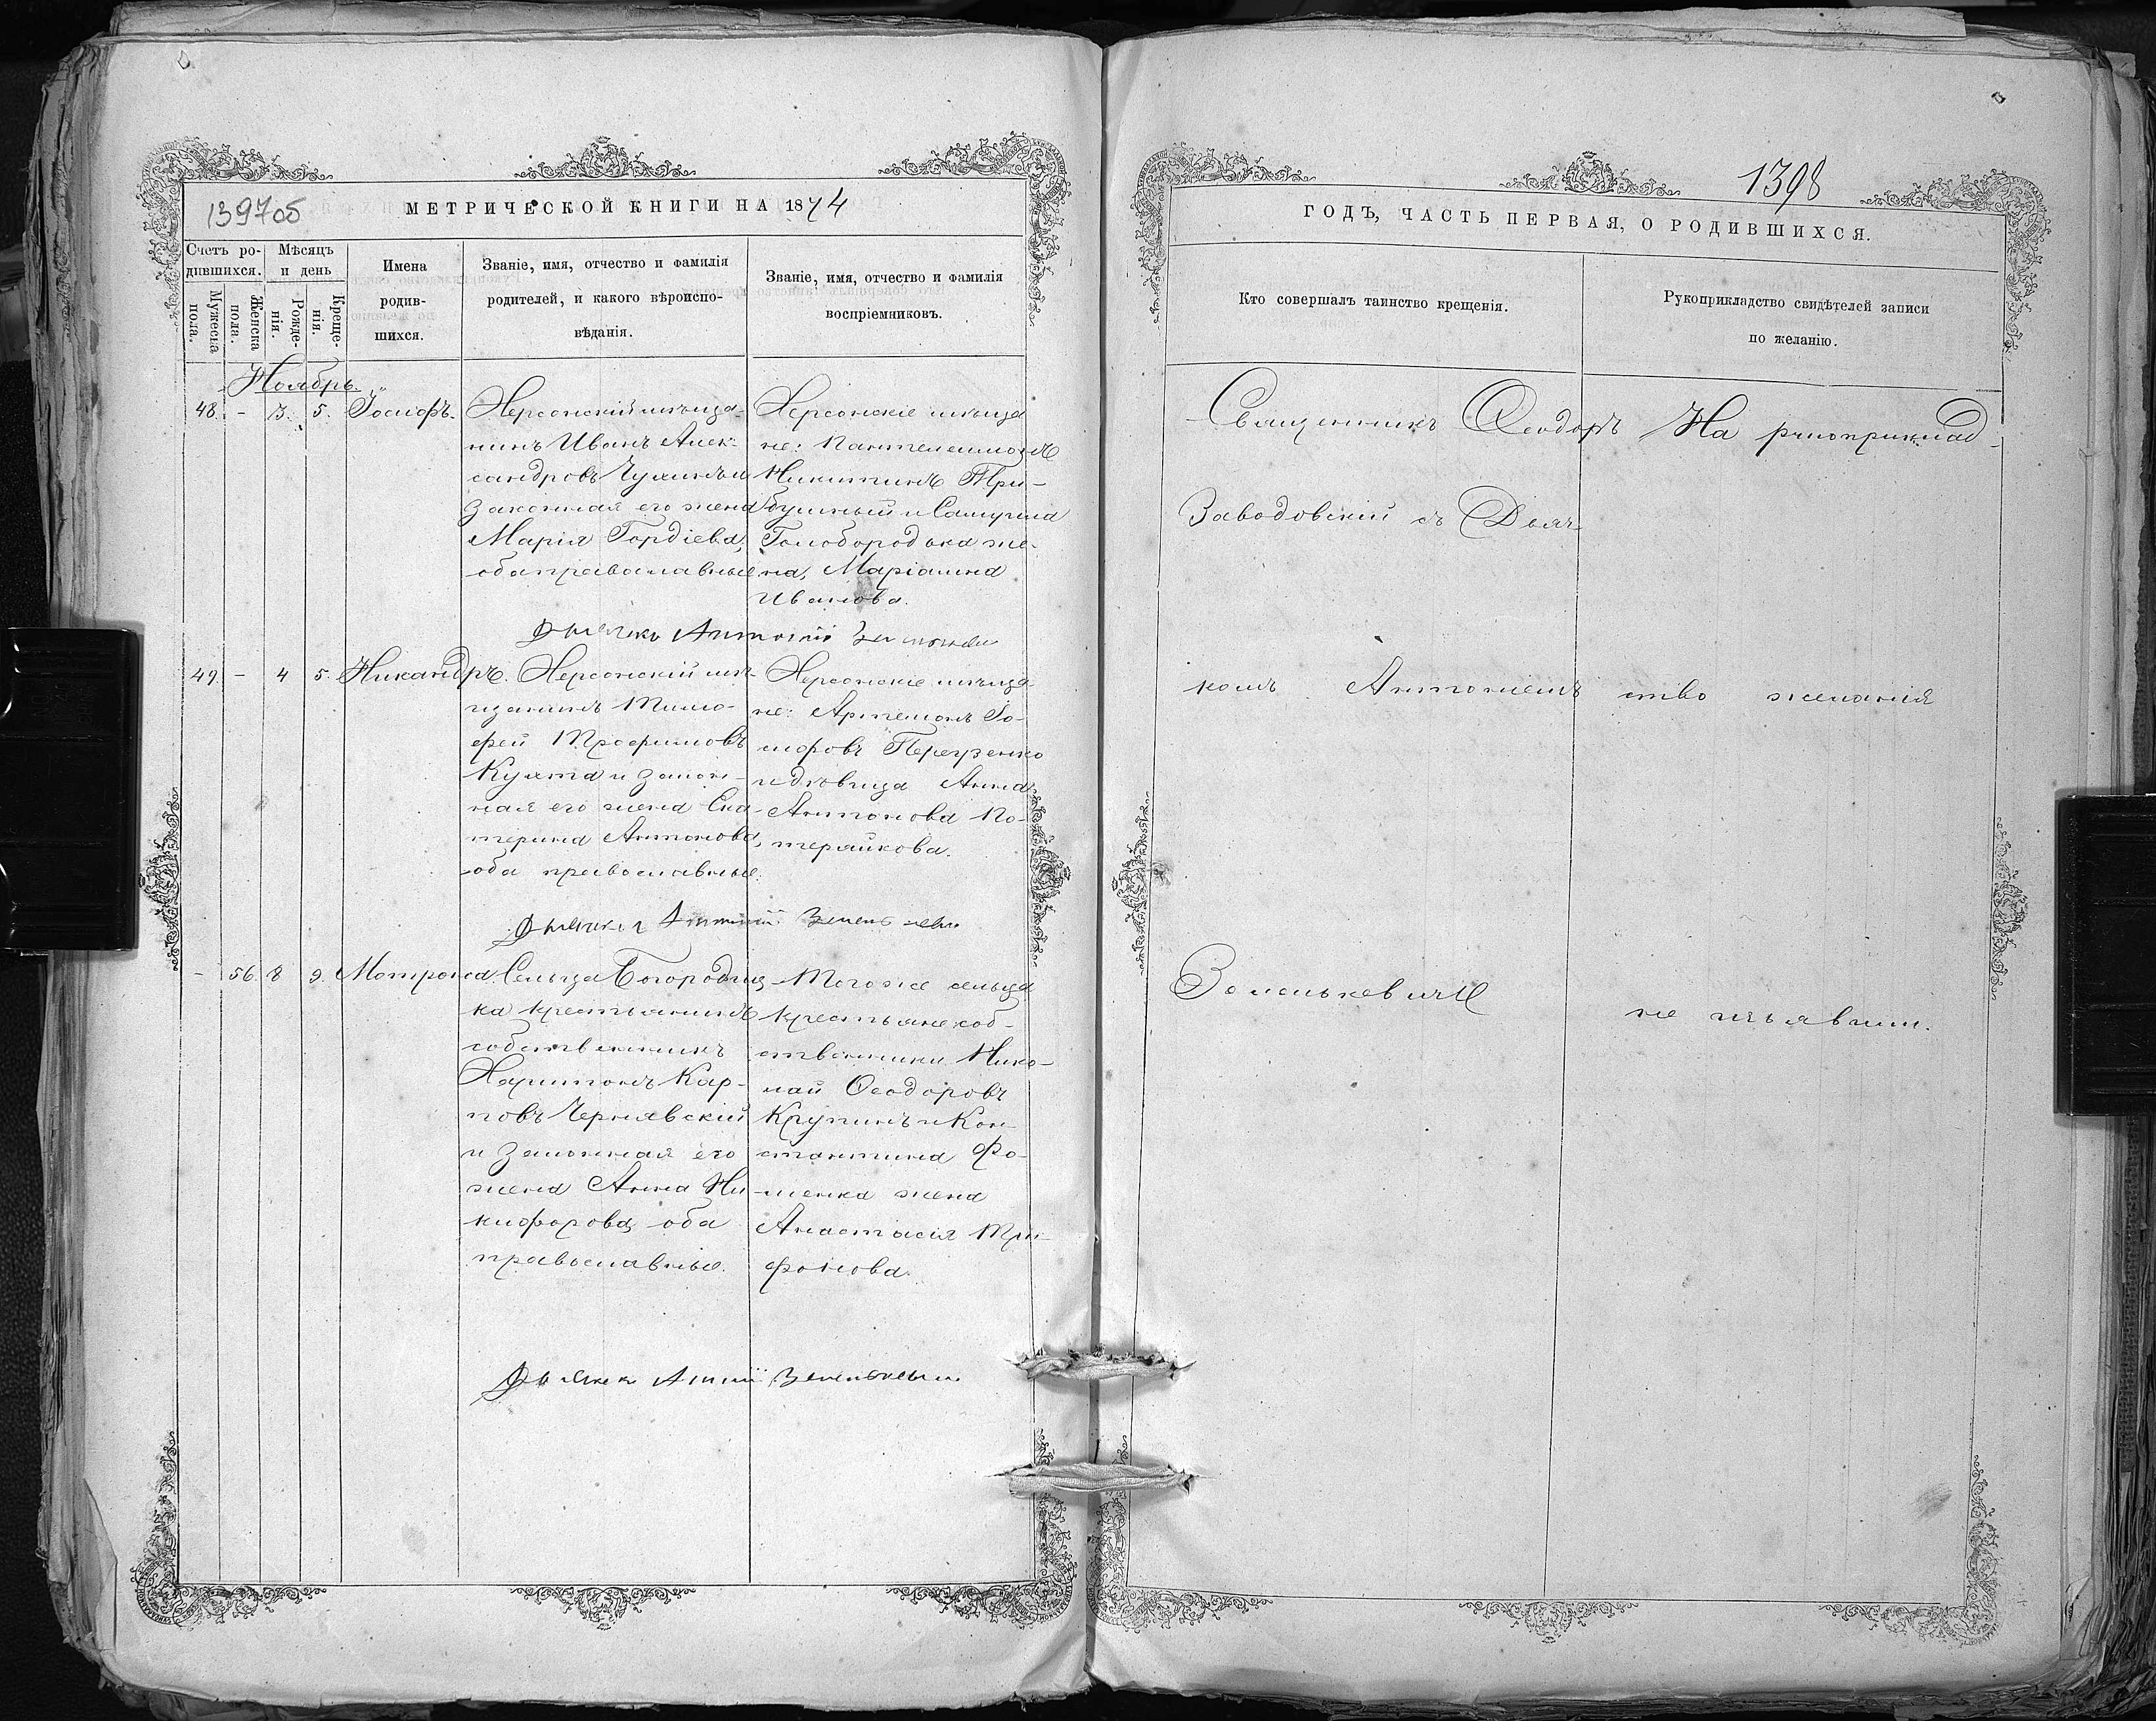 139705
МЕТРИЧЕСКОЙ КНИГИ НА 1874
Счетъ ро-
дившихся.
Мужеска
пола.
Женска
пола.
Мѣсяцъ
и день
Рожде-
нія.
Креще-
нія.
Имена
родив-
шихся.
Званіе, имя, отчество и фамилія
родителей, и какого вѣроиспо-
вѣданія.
Званіе, имя, отчество и фамилія
воспріемниковъ.
Ноябрь.
48. - 3. 5. Іосифъ.
Херсонскій мѣща-
нинъ Иванъ Алек-
сандровъ и
Законная его жена
Марія Гордіева,
оба православные
Херсонскіе мѣща
не: Пантелеимонъ
Никитинъ Три-
и Самуила
Голобородька же-
на, Маріамна
Иванова.
Дьячекъ Антоній Зеленькевич
49. - 4 5. Никандръ.
Херсонскій мѣ-
щанинъ Тимо-
фей Трофимовъ
Кухта и закон-
ная его жена Ека-
терина Антонова,
оба православные.
Херсонскіе мѣща-
не: Артемонъ Іо-
сифовъ
и дѣвица Анна
Антонова По-
терайкова.
Дьячекъ Антоній Зеленькевич
- 56. 8 9. Матрона.
Сельца Богородиц-
ка крестьянинъ
собственникъ
Харитонъ Кар-
повъ Чернявскій
и законная его
жена Анна Ни-
кифорова, оба
православные.
Того же сельца
крестьяне соб-
ственники Нико-
лай Ѳеодоровъ
Крупинъ и Кон-
стантина Фо-
менка жена
Анастасія Три-
фонова.
Дьячекъ Антоній Зеленькевич
1398
ГОДЪ, ЧАСТЬ ПЕРВАЯ, О РОДИВШИХСЯ.
Кто совершалъ таинство крещенія.
Рукоприкладство свидѣтелей записи
по желанію.
Священникъ Ѳеодоръ
Заводовскій съ Дьяч-
комъ Антоніемъ
Зеленькевичъ
На рукоприклад-
ство желанія
не изъявили.